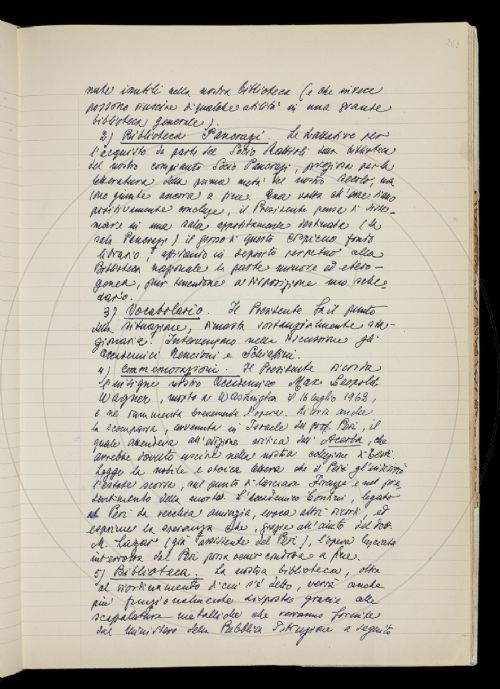 nute inutili nella nostra biblioteca (e che invece
possono riuscire di qualche utilità in una grande
biblioteca generale).
2) Biblioteca Pancrazi. Le trattative per
l'acquisto da parte del Socio della biblioteca
del nostro compianto Socio Pancrazi, preziosa per la
letteratura della prima metà del nostro secolo, non
sono giunte ancora a fine. Una volta ch'esse siano
positivamente concluse, il Presidente pensa di
in una sala appositamente destinata (la
sala Pancrazi) il grosso di questo cospicuo fondo
librario affidando in deposito perpetuo alla
Biblioteca nazionale la parte minore ed etero-
genea, pur tenendone a disposizione uno sche-
dario.
3) Vocabolario. Il Presidente fa il punto
della situazione, rimasta sostanzialmente sta-
zionaria. Intervengono nella discussione gli
accademici Nencioni e Schiaffini.
4) Commemorazioni. Il Presidente ricorda
l'insigne nostro Accademico Max Leopold
Wagner, morto a Washington il 16 luglio 1962,
e ne rammenta brevemente l'opera. Ricorda anche
la scomparsa, avvenuta in Israele del prof. Peri, il
quale attendeva all'edizione critica dell'Acerba, che
avrebbe dovuto uscire nella nostra collezione di testi.
Legge la nobile e stoica lettera che il Peri gli indirizzò
l'estate scorsa, sul punto di lasciare Firenze e nel pre-
sentimento della morte. L'accademico Contini, legato
al Peri da vecchia amicizia, evoca altri ricordi, ed
esprime la speranza che, grazie all'aiuto del dott.
M. Lazar (già assistente del Peri), l'opera lasciata
interrotta dal Peri possa venir condotta a fine.
5) Biblioteca. La nostra biblioteca, oltre
al riordinamento di cui s'è detto, verrà anche
più funzionalmente disposta grazie alle
scaffalature metalliche che verranno fornite
dal Ministero della Pubblica Istruzione a seguito